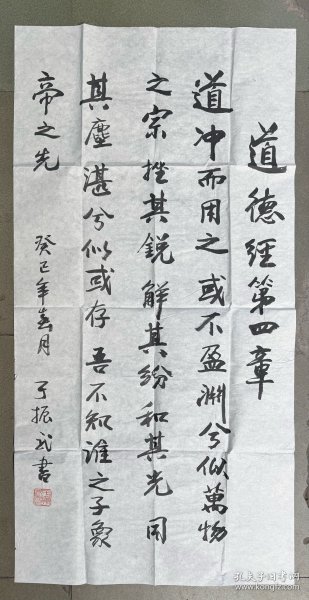 道德经第四章
道冲而用之或不盈渊兮似萬物
之宗挫其鋭解其纷和其光同
其塵湛兮似或存吾不知誰之子象
帝之先
癸巳年春月 于振武書
孔夫子旧书网